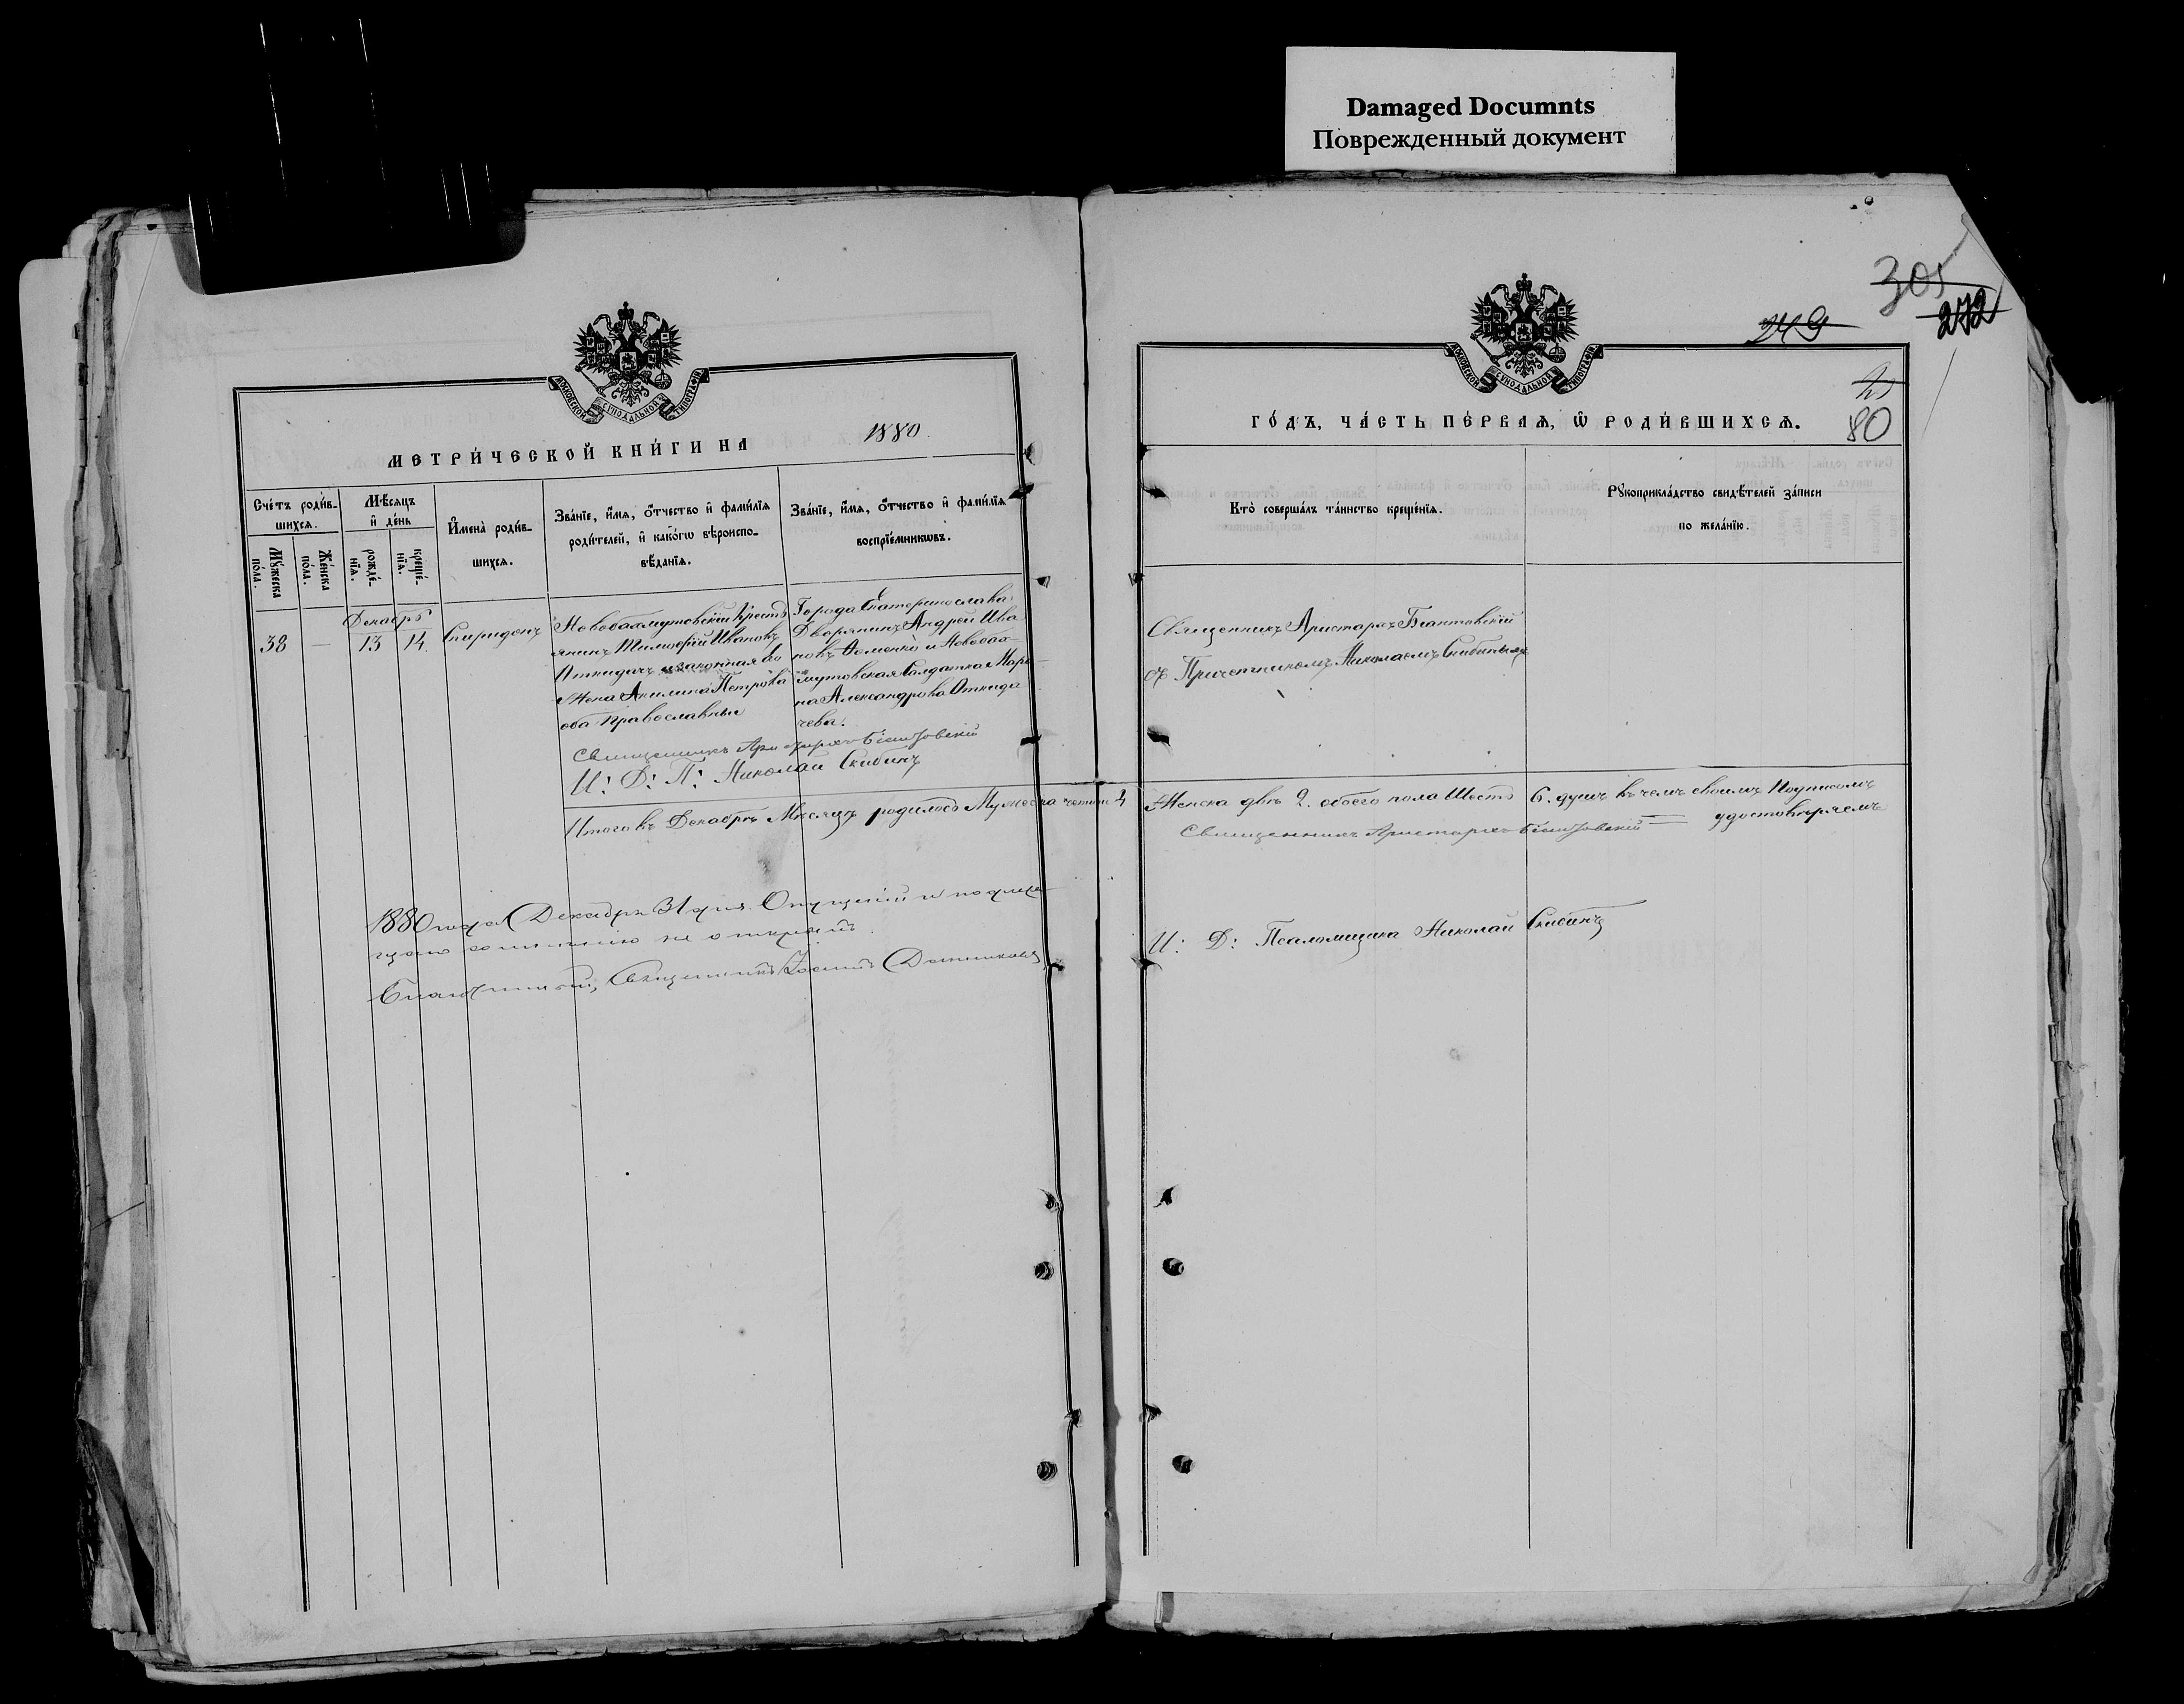 Damaged Documnts
Поврежденный документ
305
272
249
80
МОСКОВСКОЙ СУНОДАЛЬНОЙ ТИПОГРАФІИ
МЕТРИ́ЧЕСКОЙ КНИ́ГИ НА 1880.
Сче́тъ роди́в-
шихсѧ.
Мꙋ́жеска
по́ла.
Же́нска
по́ла.
Мѣ́сяцъ
и҆ де́нь
рожде́-
нїѧ.
креще́-
нїѧ.
И҆мена̀ роди́в-
шихсѧ.
Зва́нїе, и҆́мѧ, ѻ҆́тчество и҆ фами́лїѧ
роди́телей, и҆ како́гѡ вѣроиспо-
вѣ́данїѧ.
Зва́нїе, и҆́мѧ, ѻ҆́тчество и҆ фами́лїѧ
воспрїе́мникѡвъ.
Декабрь
38 — 13 14 Спиридонъ
Новобахмутовскій Кресть
янинъ Тимофей Ивановъ
Откидачъ и законная его
Жена Акилина Петрова
оба православные
Города Екатеринослава
Дворянинъ Андрей Ива
новъ Фоменко и Новобах-
мутовская Солдатка Мари
на Александрова Откида
чева.
Священникъ Аристархъ
И: Д: П: Николай Скибинъ
Итого въ Декабрѣ Мѣсяцѣ родилось Мужеска четыри 4
1880 года Декабря 31 дня. Опущеній и подлежа-
щаго сомнѣнію не открылъ.
Благочинный, Священникъ
МОСКОВСКОЙ СУНОДАЛЬНОЙ ТИПОГРАФІИ
ГО́ДЪ, ЧА́СТЬ ПЕ́РВАѦ, Ѽ РОДИ́ВШИХСѦ.
Кто̀ соверша́лъ та́инство креще́нїѧ.
Рꙋкоприкла́дство свидѣ́телей за́писи
по жела́нїю.
Священникъ Аристархъ
съ Причетникомъ Николаемъ Скибинымъ
Женска двѣ 2. обоего пола Шесть 6. душъ въ чемъ своимъ Подписомъ
удостовѣряемъ
Священникъ Аристархъ
И: Д: Псаломщика Николай Скибинъ